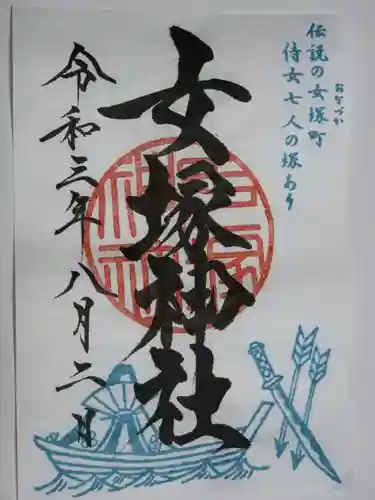 伝説の女塚町
おなづか
侍女七人の塚あり
女塚神社
令和三年八月二日